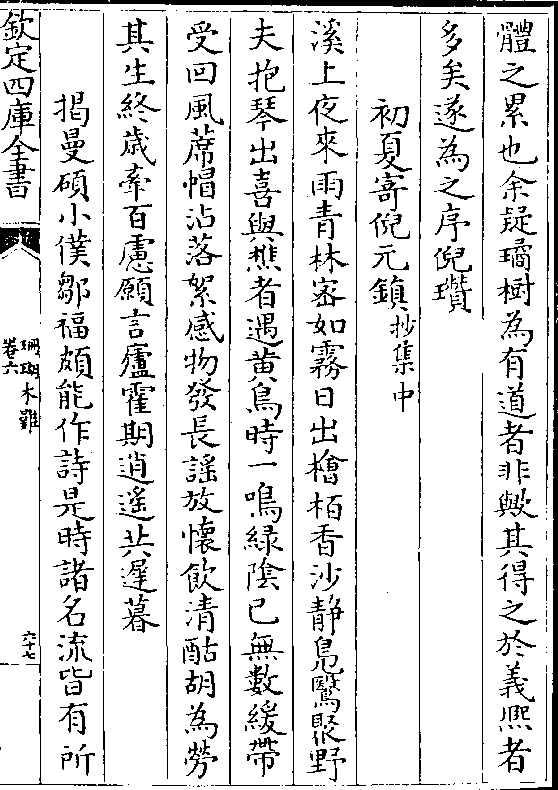 體之累也余疑璚樹為有道者非歟其得之於義熙者
多矣遂為之序倪瓚
初夏寄倪元鎮抄集中
溪上夜來雨青林密如霧日出檜栢香沙静鳬鷖聚野
夫抱琴出喜與樵者遇黄鳥時一鳴緑陰已無數緩帶
受回風蓆帽沾落絮感物發長謡放懐飲清酤胡為勞
其生終歳牽百慮願言廬霍期逍遥共遲暮
揭曼碩小僕鄒福頗能作詩是時諸名流皆有所
欽定四庫全書
珊瑚木難
卷六
六十七